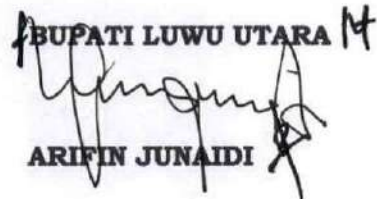 BUPATI LUWU UTARA
ARIFIN JUNAIDI